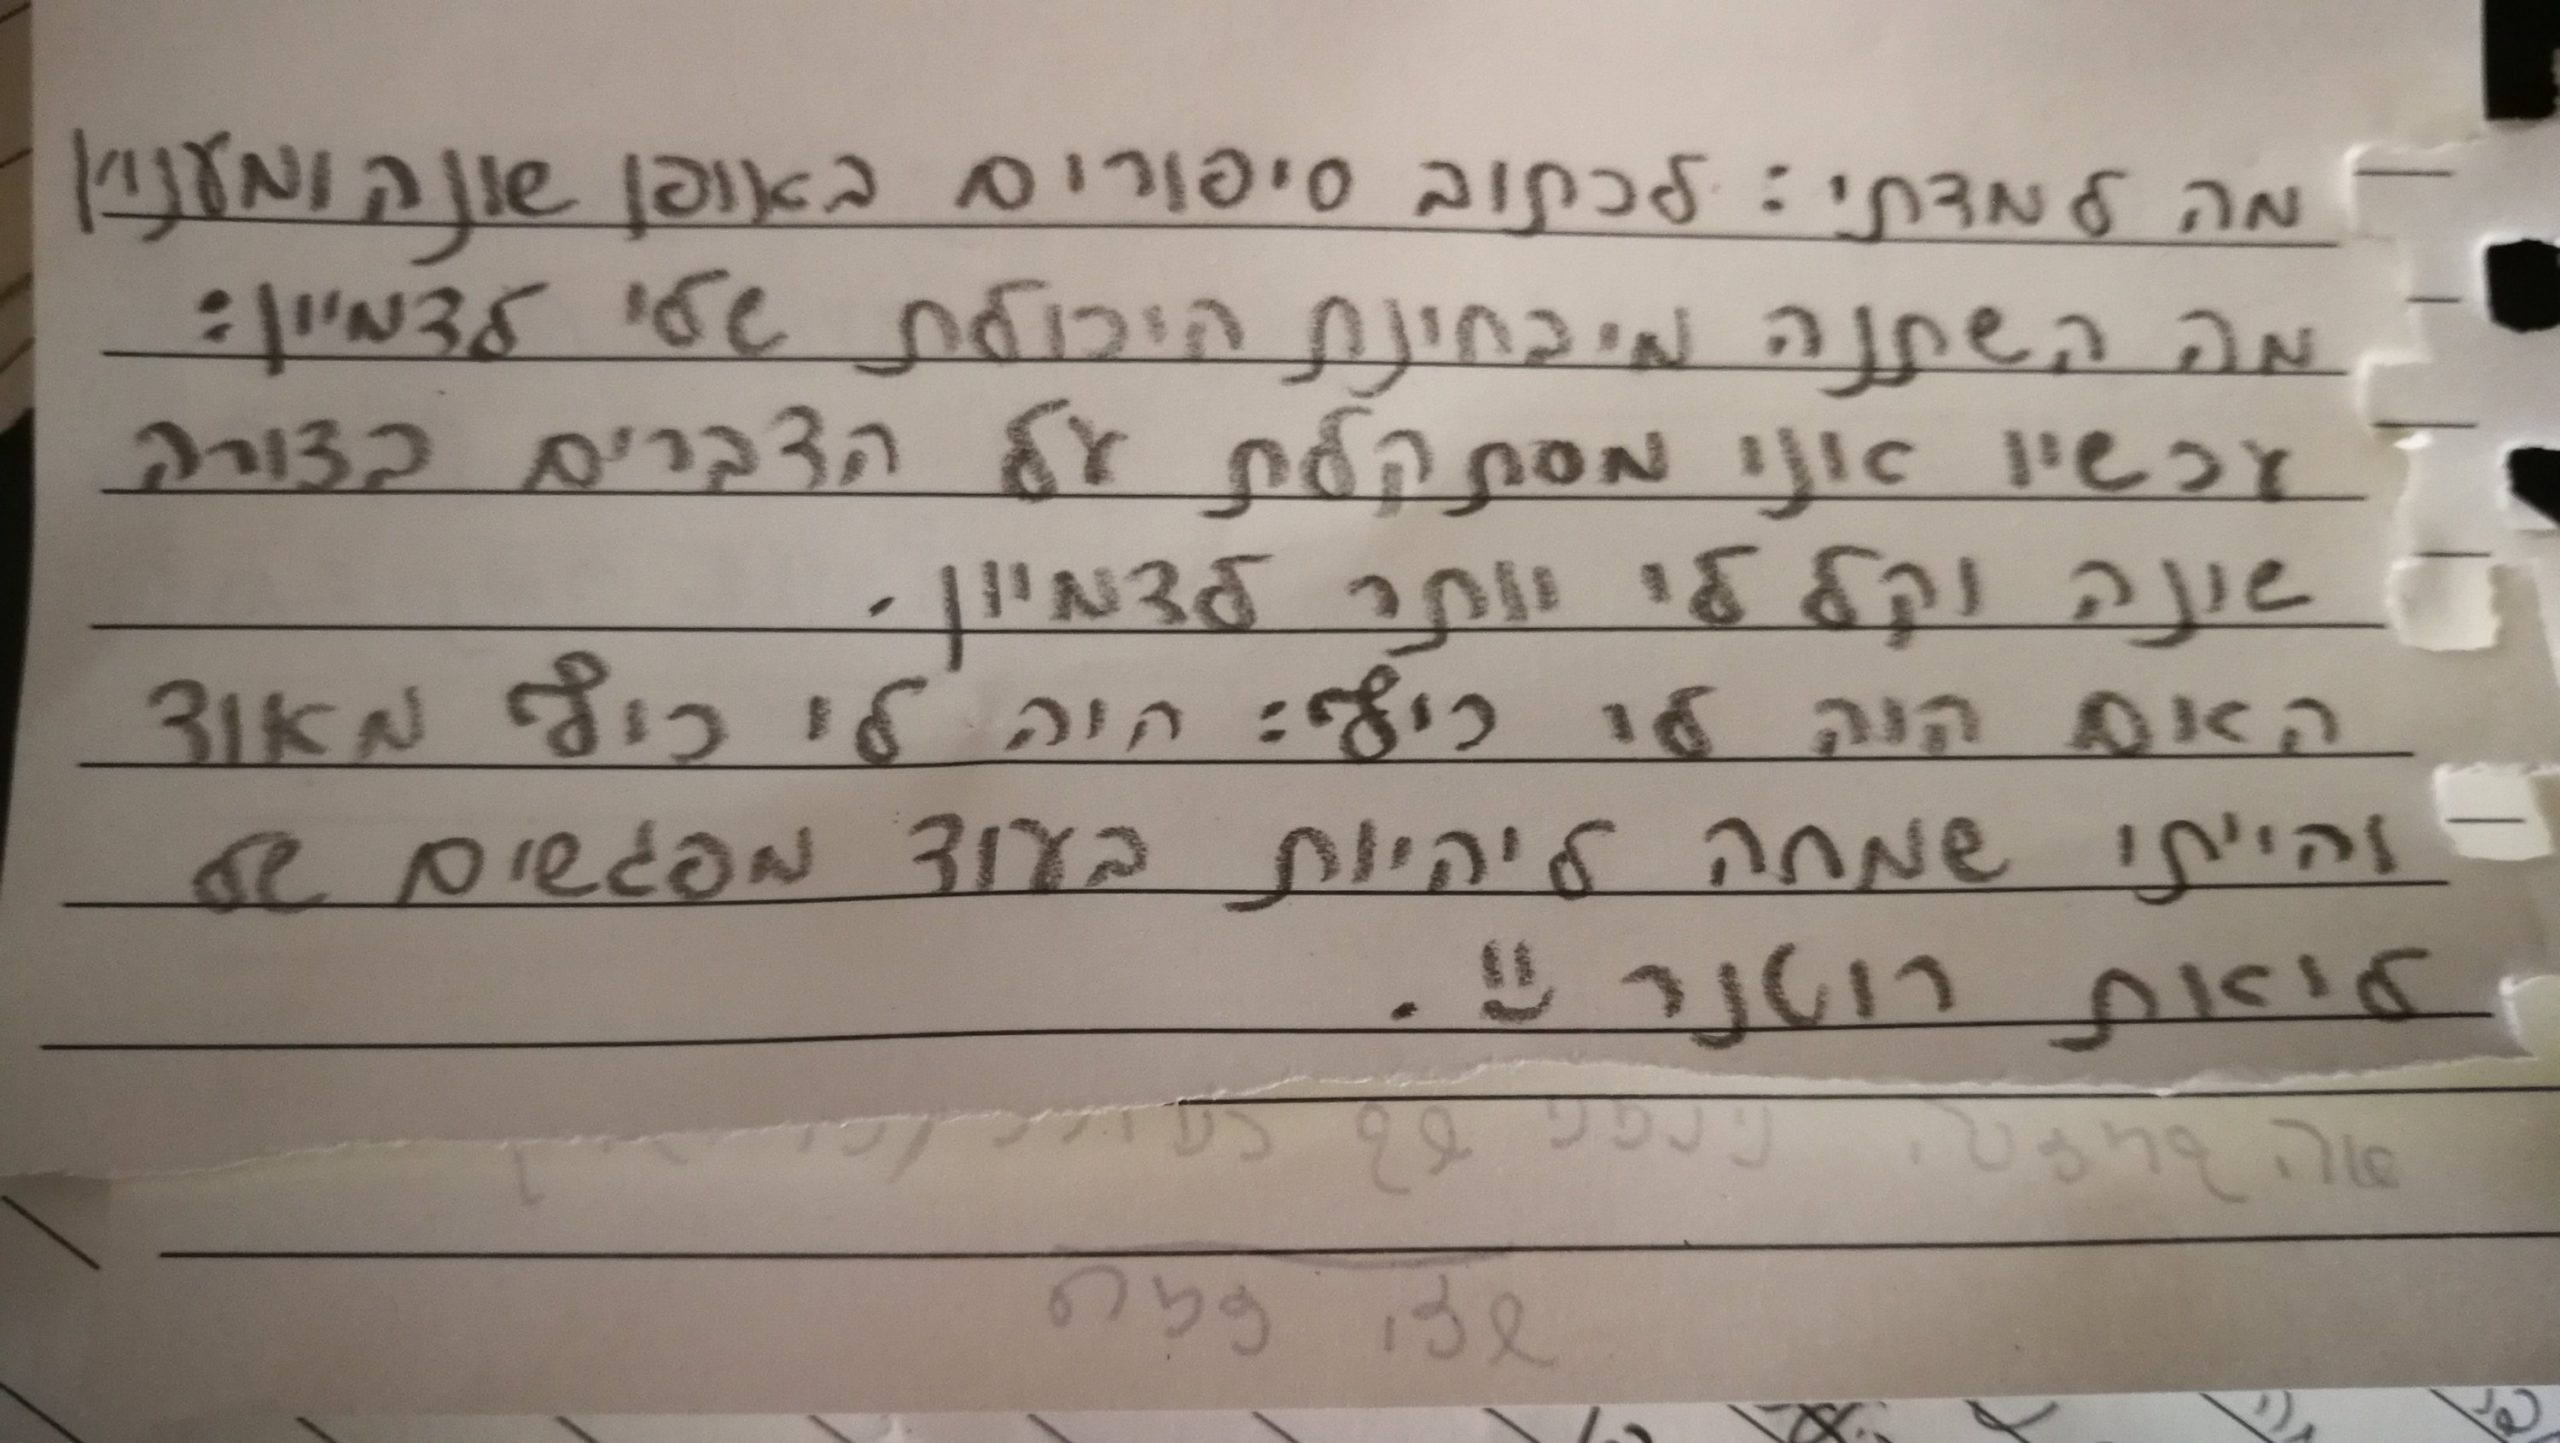 מה למדתי: לכתוב סיפורים באופן שונה ומעניין
מה השתנה מיבחינת היכולת שלי לדמיין:
עכשיו אני מסתקלת על הדברים בצורה
שונה וקל לי יותר לדמיין.
האם הוה לי כיף: היה לי כיף מאוד
והייתי שמחה ליהיות בעוד מפגשים של
ליאת רוטנר .